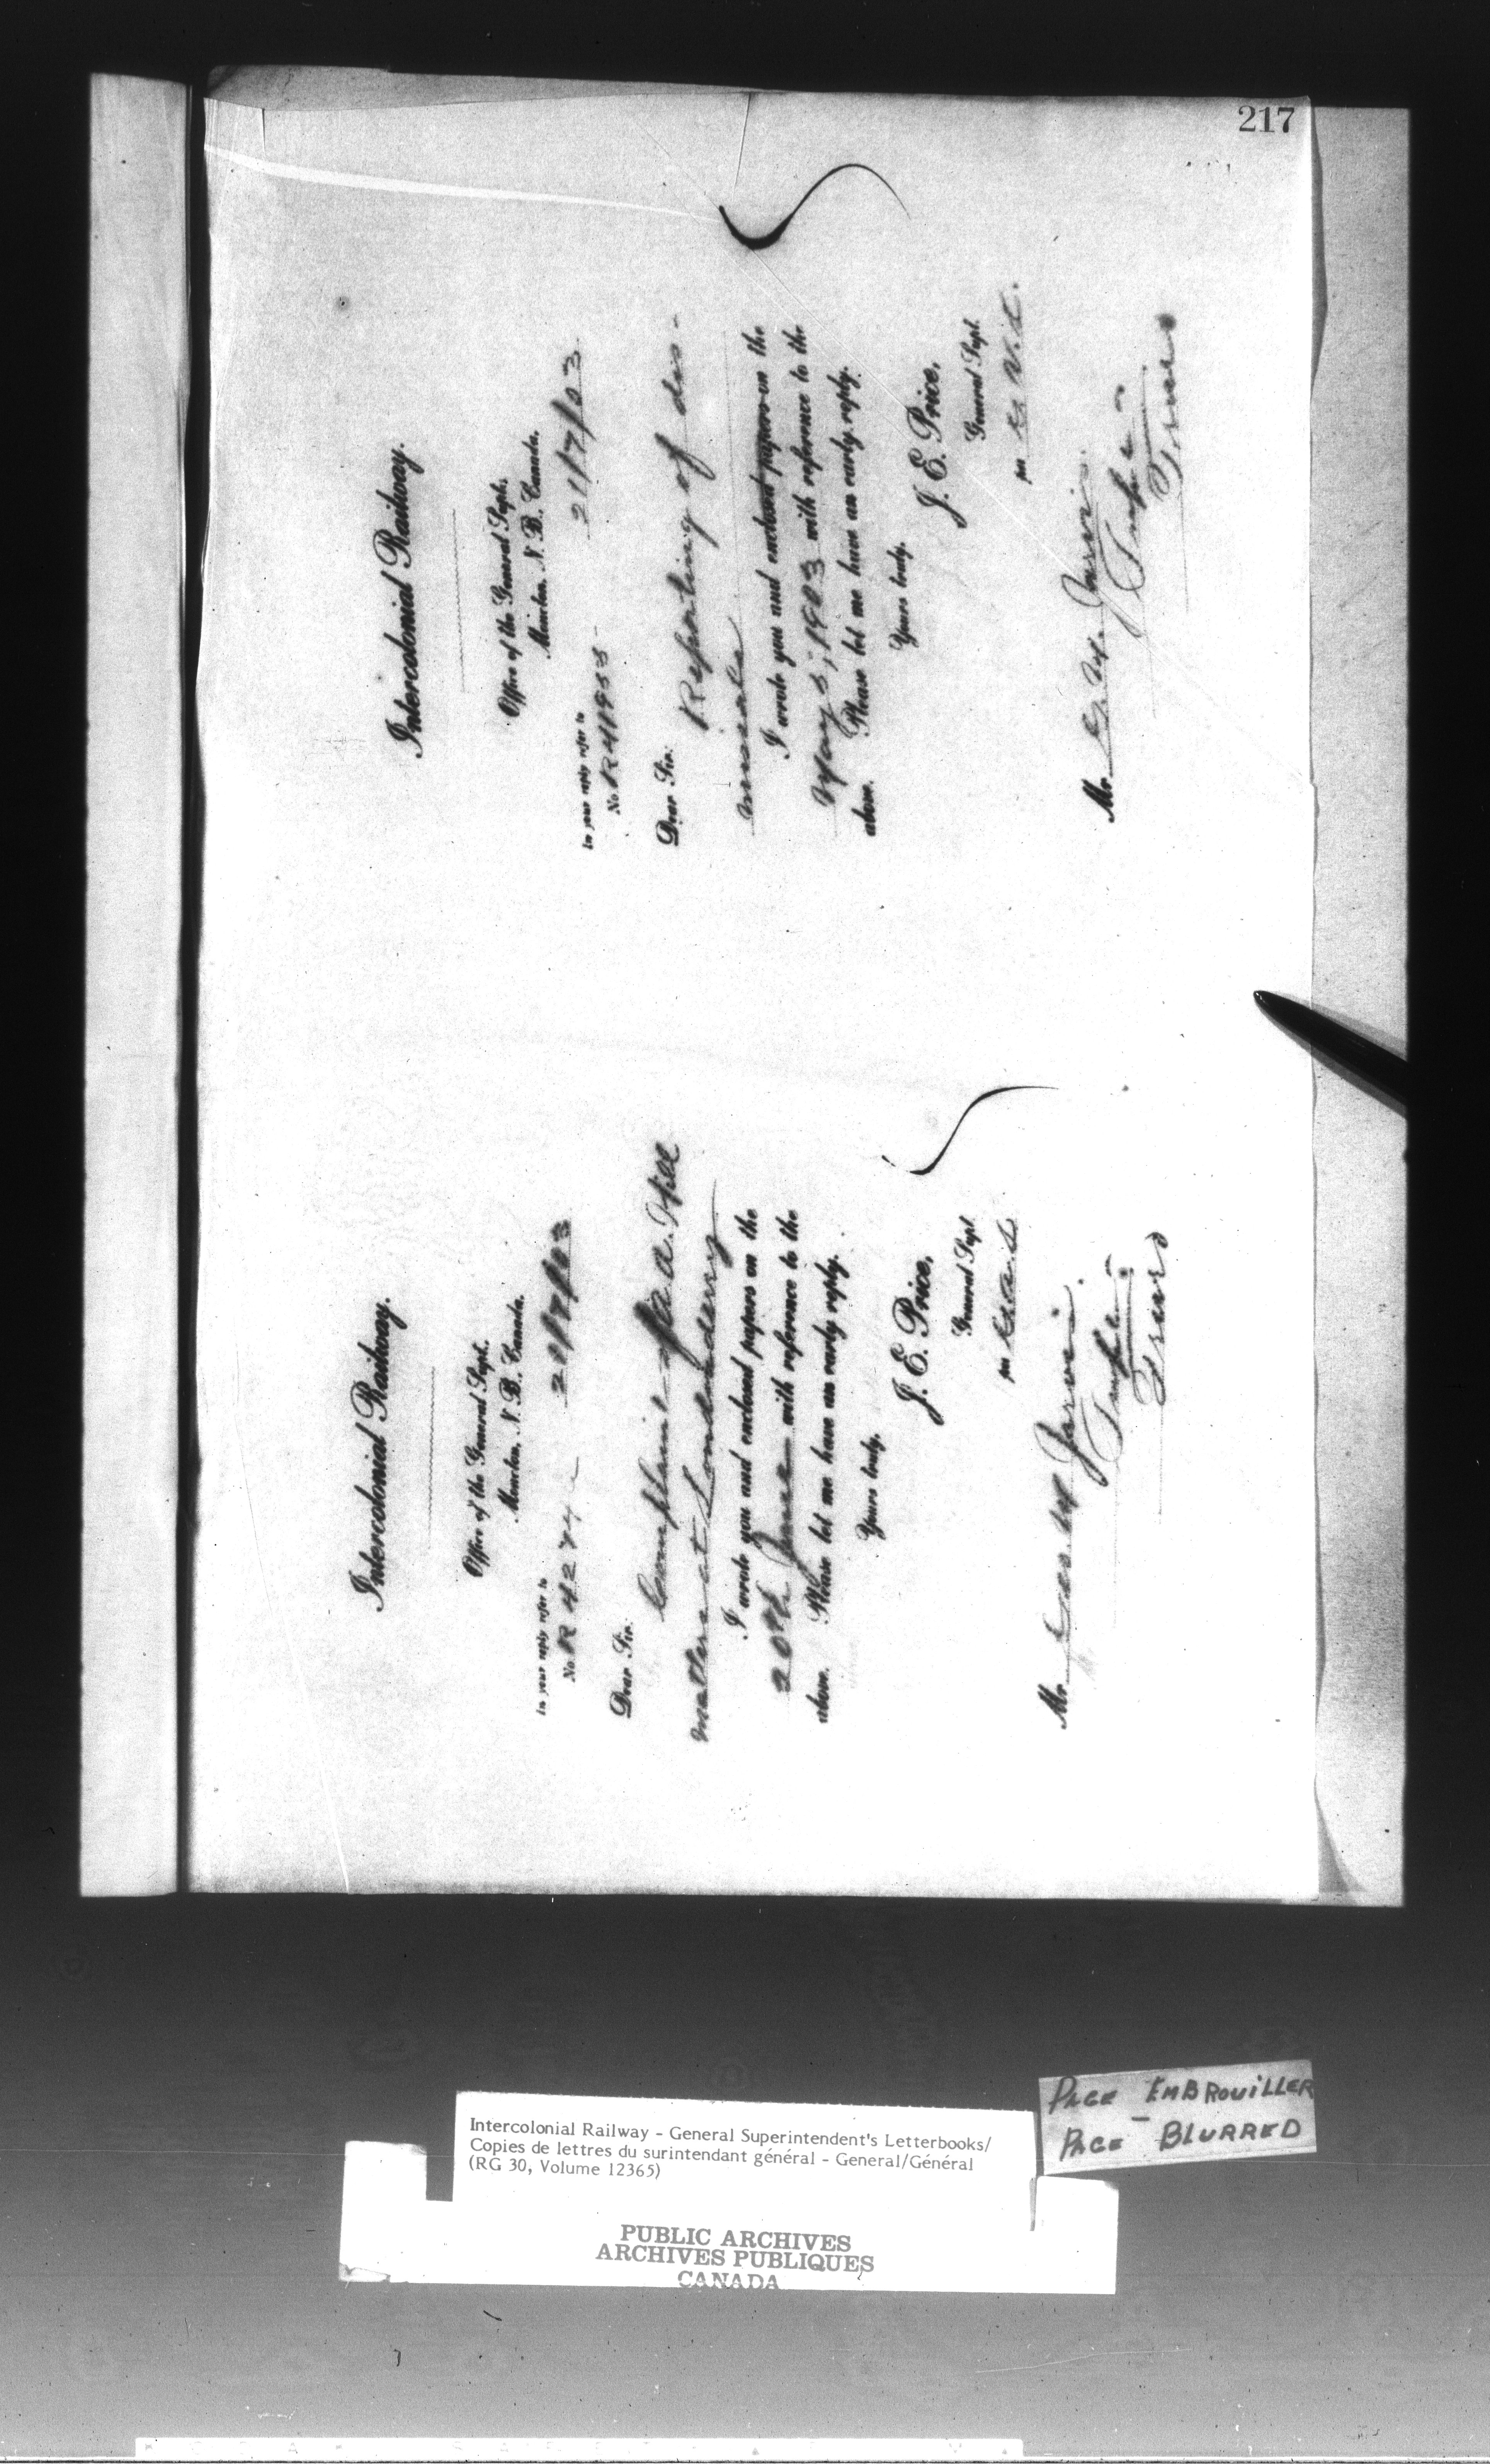 217
Intercolonial Railway.
Office of the General Supt.
Moncton, N. B., Canada.
21/7/03
In your reply refer to
No. R
Dear Sir:
Complaint of A. A. Hill
matters at Londonderry
I wrote you and enclosed papers on the
20th June with reference to the
above. Please let me have an early reply.
Yours truly,
J. E. Price,
General Supt
per
Mr. Geo. M Jarvis.
Supt.
Truro
Intercolonial Railway.
Office of the General Supt.
Moncton, N. B., Canada.
21/7/03
In your reply refer to
No. R 41955
Dear Sir:
Reporting of dis-
I wrote you and enclosed papers on the
May 5, 1903 with reference to the
above. Please let me have an early reply.
Yours truly,
J. E. Price,
General Supt.
per
Mr. G. M. Jarvis.
Supt.
Truro
Intercolonial Railway - General Superintendent's Letterbooks/
Copies de lettres du surintendant général - General/Général
(RG 30, Volume 12365)
PUBLIC ARCHIVES
ARCHIVES PUBLIQUES
CANADA
PAGE EMBROUILLER
PAGE - BLURRED